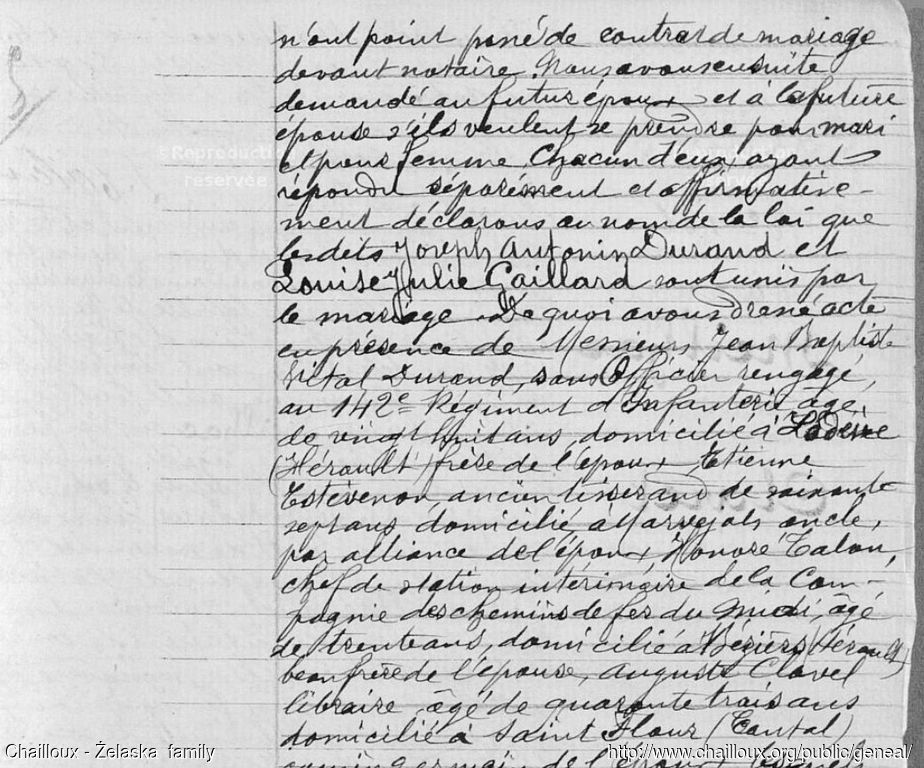 n'ont point passé de contrat de mariage
devant notaire. Nous avons ensuite
demandé au futur époux et à la future
épouse s'ils veulent se prendre pour mari
et pour femme chacun d'eux ayant
répondu séparément et affirmative-
ment déclarons au nom de la loi que
les dits Joseph Antonin Durand et
Louise Julie Gaillard sont unis par
le mariage De quoi avons dressé acte
en présence de Messieurs Jean Baptiste
Vital Durand, sous Officier rengagé,
au 142e Régiment d'Infanterie agé
de vingt huit ans, domicilié à Lodève
(Hérault) frère de l'époux, Etienne
Estévenon ancien tisserand de soixante
sept ans domicilié à Marvejols oncle,
par alliance de l'époux Honoré Talon,
chef de station intérimaire de la Com-
pagnie des chemins de fer du Midi, âgé
de trente ans, domicilié à Béziers (Hérault)
beau frère de l'épouse, Auguste Clavel
libraire, âgé de quarante trois ans
domicilié à Saint Flour (Cantal)
cousin germain de l'époux
©Reproduction
réservée
Reproduction
réservée
Chailloux - Želaska family
http://www.chailloux.org/public/geneal/